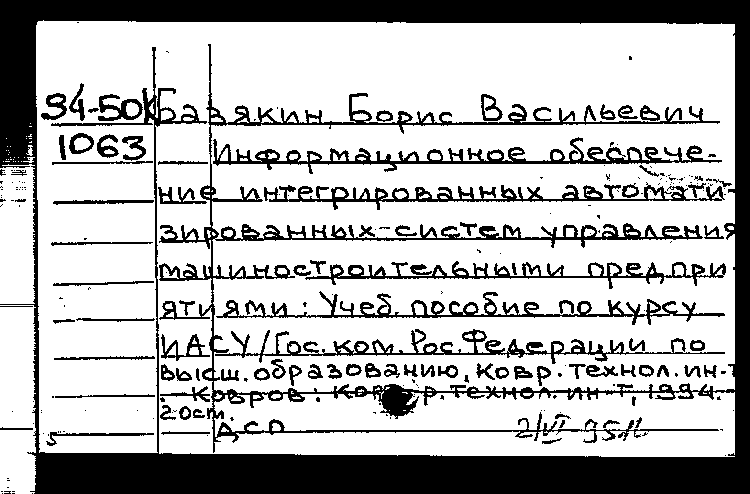 94-50К Базякин, Борис Васильевич
1063 Информационное обеспече-
ние интегрированных автомати-
зированных систем управления
машиностроительными предпри-
ятиями: Учеб. пособие по курсу
ИАСУ/Гос. ком. Рос. Федерации по
высш. образованию, Ковр. технол. ин-т
. - Ковров: Ковр. технол. ин-т, 1994. -
ДСП
5